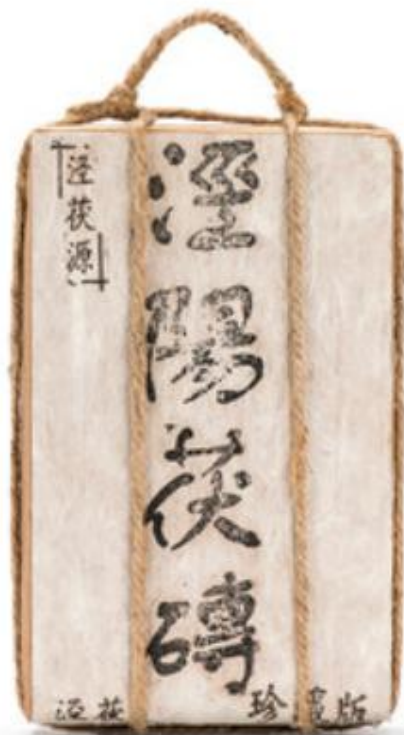 涇茯源
涇陽茯磚
涇茯
珍藏版